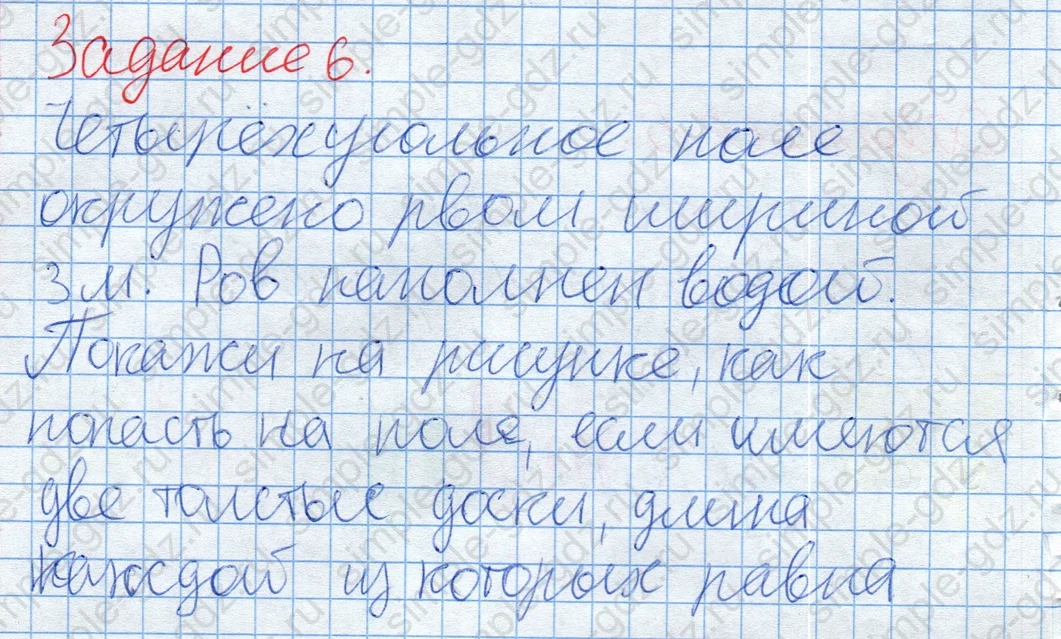 Задание 6.
Четырёхугольное поле
окружено рвом шириной
3 м. Ров наполнен водой.
Покажи на рисунке, как
попасть на поле, если имеются
две толстые доски, длина
каждой из которых равна